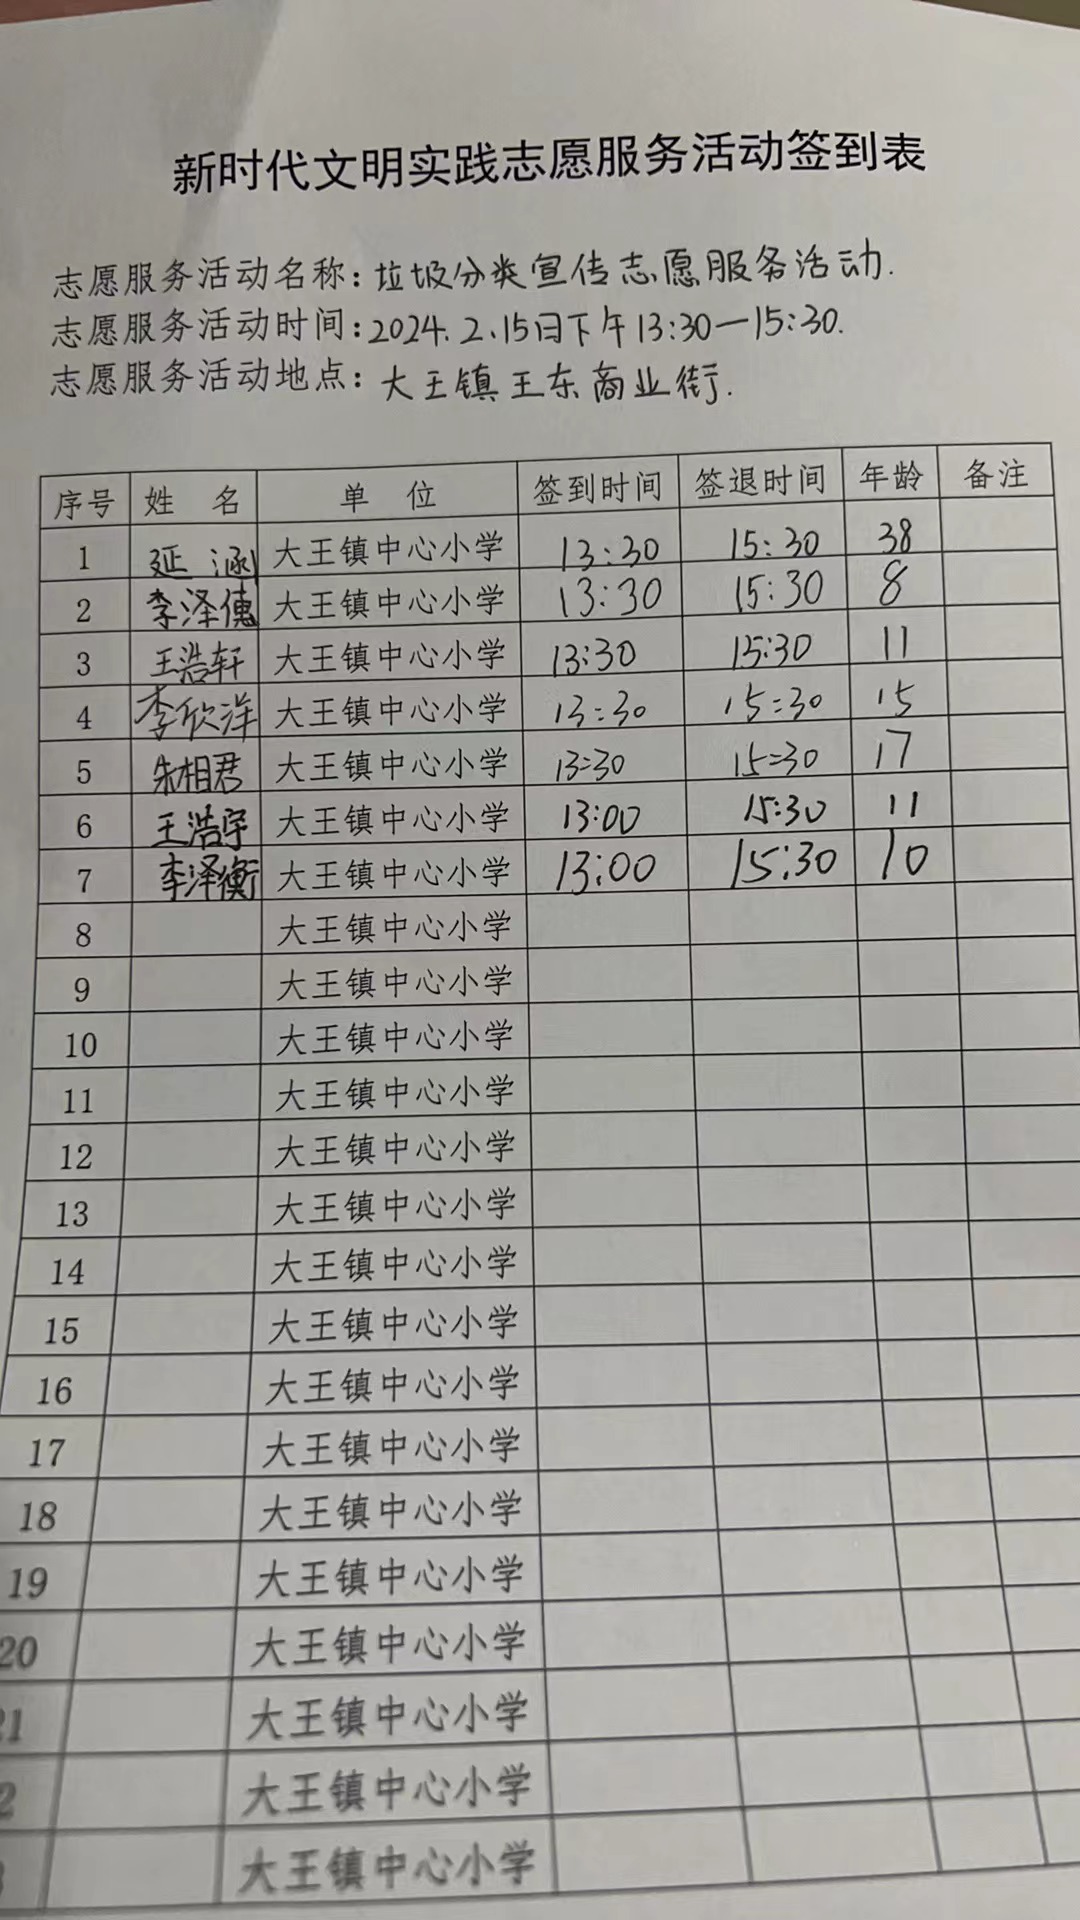 新时代文明实践志愿服务活动签到表
志愿服务活动名称：垃圾分类宣传志愿服务活动.
志愿服务活动时间：2024.2.15日下午13:30—15:30.
志愿服务活动地点：大王镇王东商业街.
序号 姓 名 单 位 签到时间 签退时间 年龄 备注
1 延涵 大王镇中心小学 13:30 15:30 38
2 李泽僡 大王镇中心小学 13:30 15:30 8
3 王浩轩 大王镇中心小学 13:30 15:30 11
4 李欣洋 大王镇中心小学 13:30 15:30 15
5 朱相君 大王镇中心小学 13:30 15:30 17
6 王浩宇 大王镇中心小学 13:00 15:30 11
7 李泽衡 大王镇中心小学 13:00 15:30 10
8 大王镇中心小学
9 大王镇中心小学
10 大王镇中心小学
11 大王镇中心小学
12 大王镇中心小学
13 大王镇中心小学
14 大王镇中心小学
15 大王镇中心小学
16 大王镇中心小学
17 大王镇中心小学
18 大王镇中心小学
19 大王镇中心小学
20 大王镇中心小学
21 大王镇中心小学
2 大王镇中心小学
大王镇中心小学